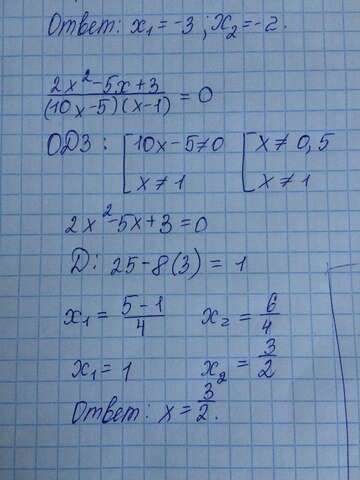 Ответ: x₁ = -3 ; x₂ = -2.
(2x² - 5x + 3) / ((10x - 5)(x - 1)) = 0
ОДЗ: [10x - 5 ≠ 0 [x ≠ 0,5
x ≠ 1 x ≠ 1
2x² - 5x + 3 = 0
D: 25 - 8(3) = 1
x₁ = (5 - 1)/4 x₂ = 6/4
x₁ = 1 x₂ = 3/2
Ответ: x = 3/2.